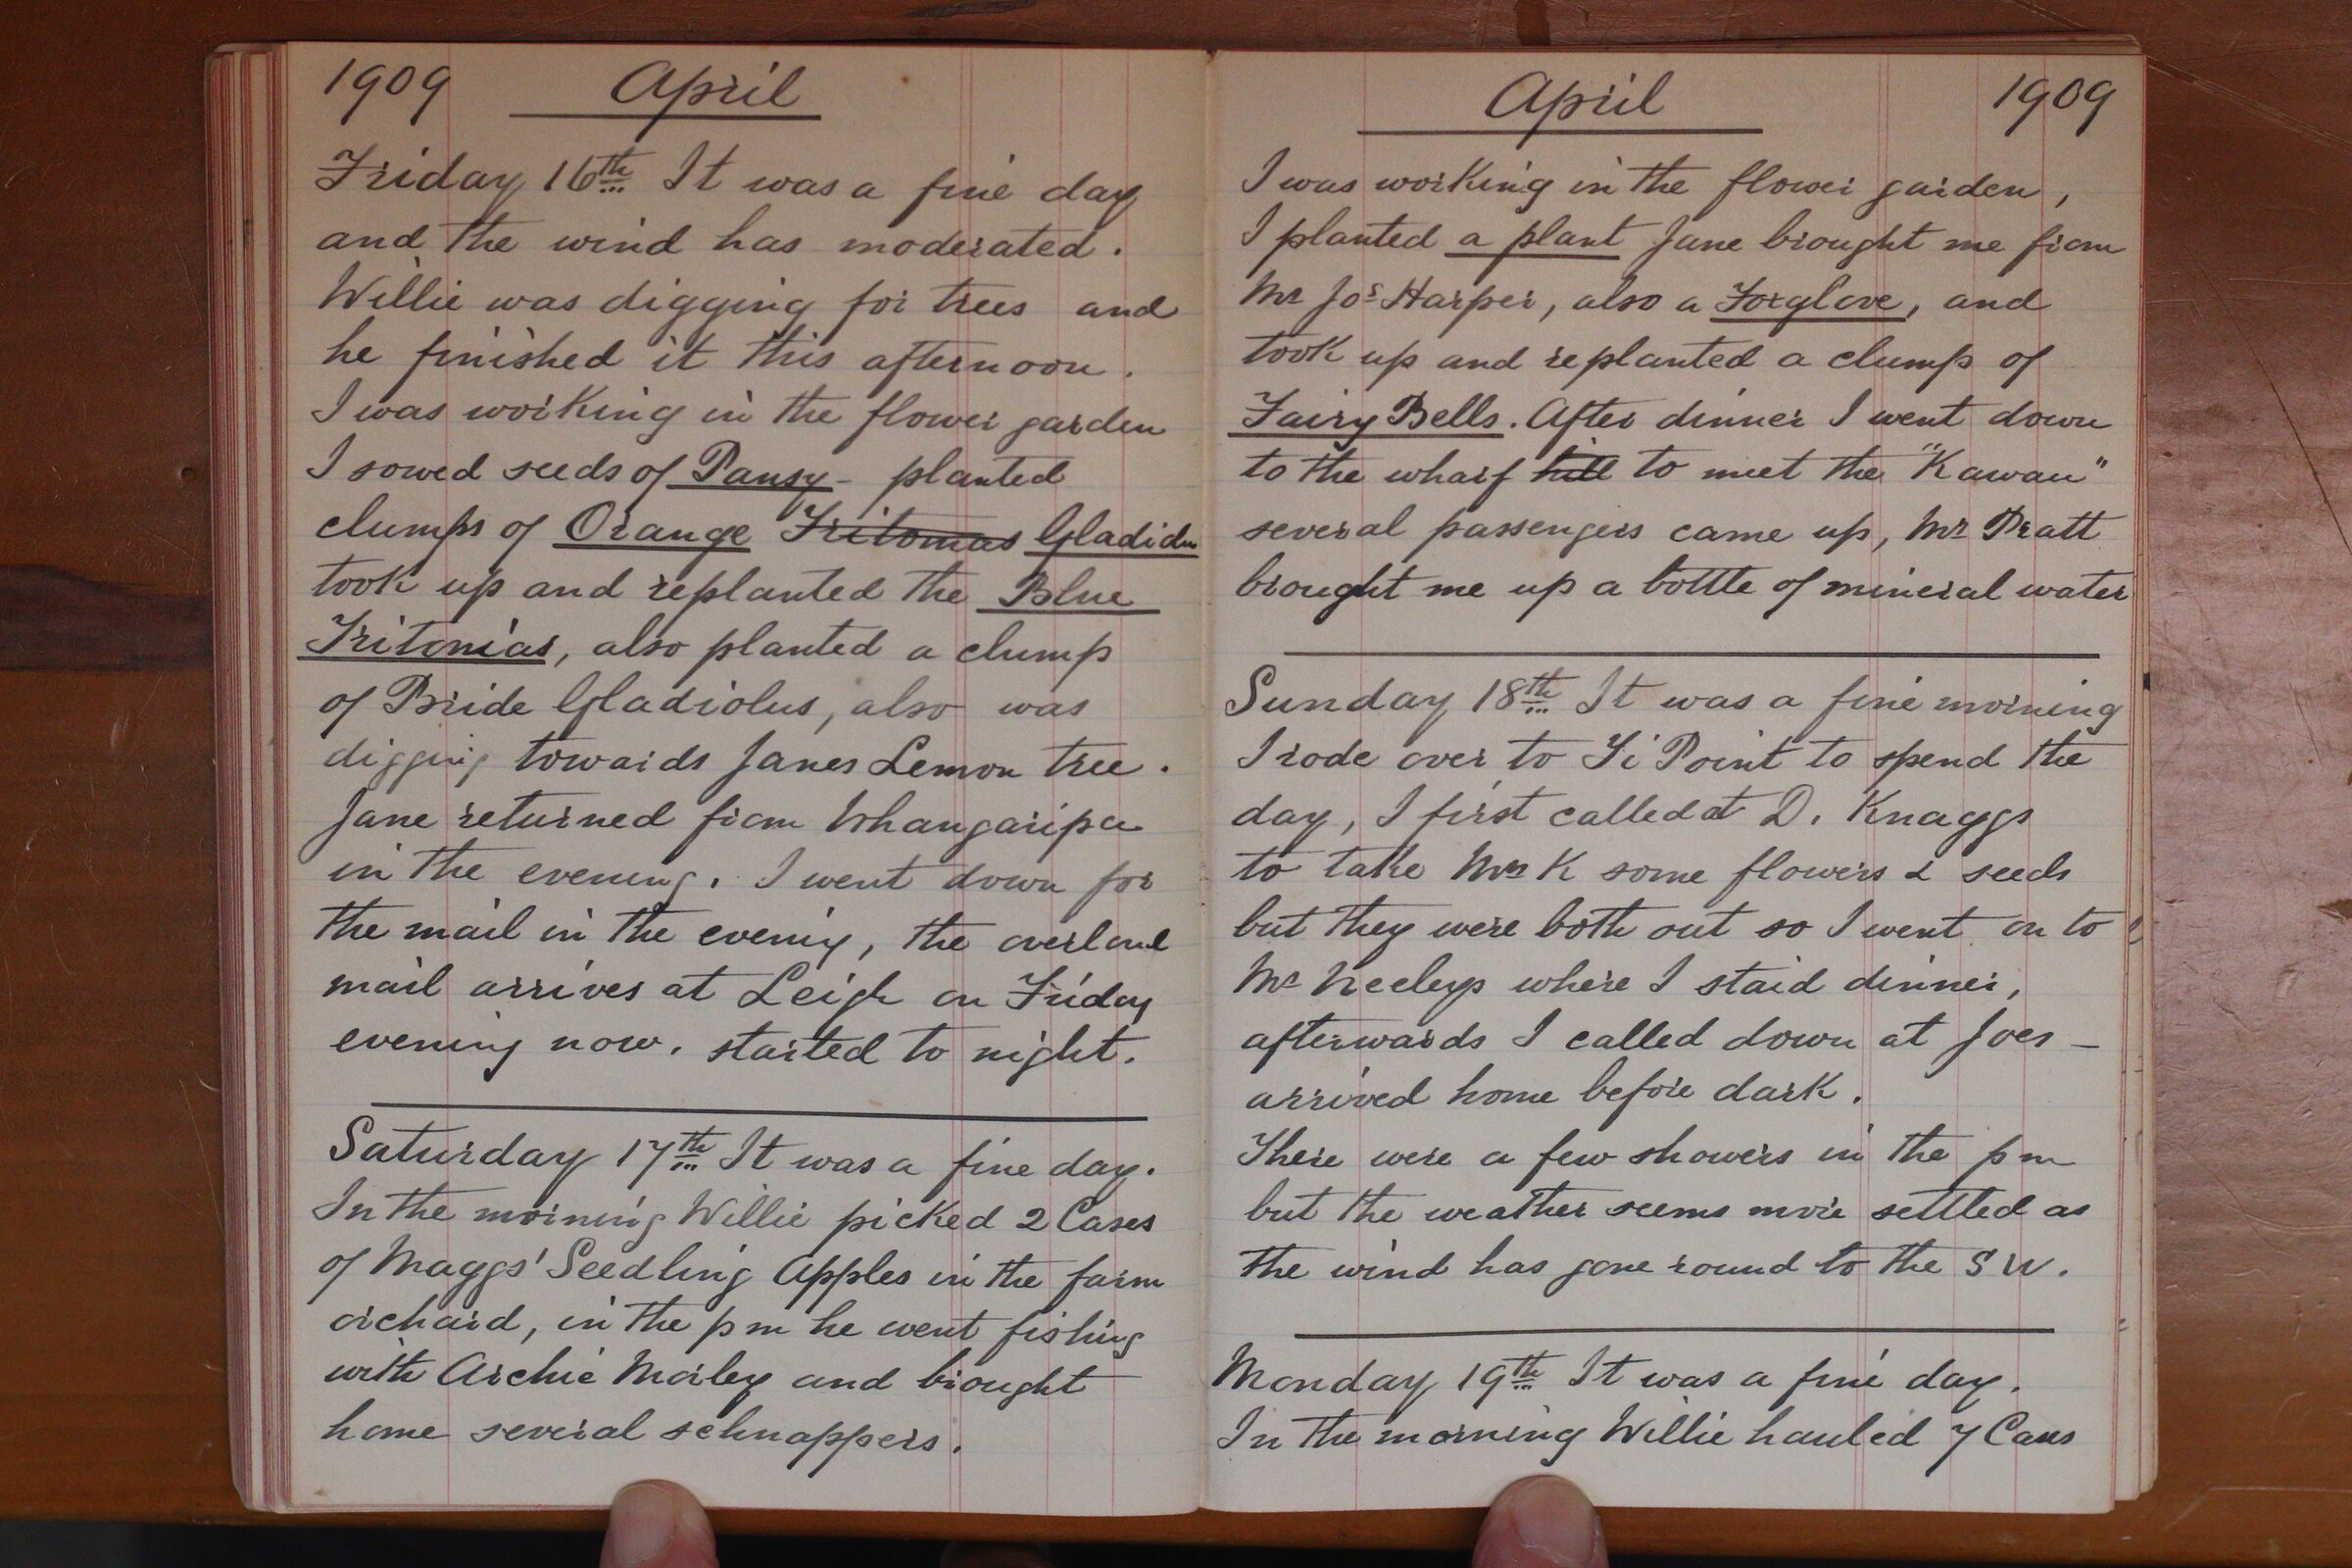 1909 April
Friday 16th It was a fine day
and the wind has moderated.
Willie was digging for trees and
he finished it this afternoon.
I was working in the flower garden
I sowed seeds of Pansy - planted
clumps of Orange Tritomas Gladiolus
took up and replanted the Blue
Tritonias, also planted a clump
of Bride Gladiolus, also was
digging towards Janes Lemon tree.
Jane returned from Whangaripa
in the evening. I went down for
the mail in the evening, the overland
mail arrives at Leigh on Friday
evening now. started to night.
Saturday 17th It was a fine day.
In the morning Willie picked 2 Cases
of Maggs' Seedling Apples in the farm
orchard, in the pm he went fishing
with Archie Marley and brought
home several schnappers.
April 1909
I was working in the flower garden,
I planted a plant Jane brought me from
Mr Jos Harper, also a Foxglove, and
took up and replanted a clump of
Fairy Bells. After dinner I went down
to the wharf till to meet the "Kawau"
several passengers came up, Mr Pratt
brought me up a bottle of mineral water
Sunday 18th It was a fine morning
I rode over to Ti Point to spend the
day, I first called at D. Knaggs
to take Mrs K some flowers & seeds
but they were both out so I went on to
Mc Neeleys where I staid dinner,
afterwards I called down at Joes -
arrived home before dark.
There were a few showers in the pm
but the weather seems more settled as
the wind has gone round to the S W.
Monday 19th It was a fine day.
In the morning Willie hauled 7 Cases